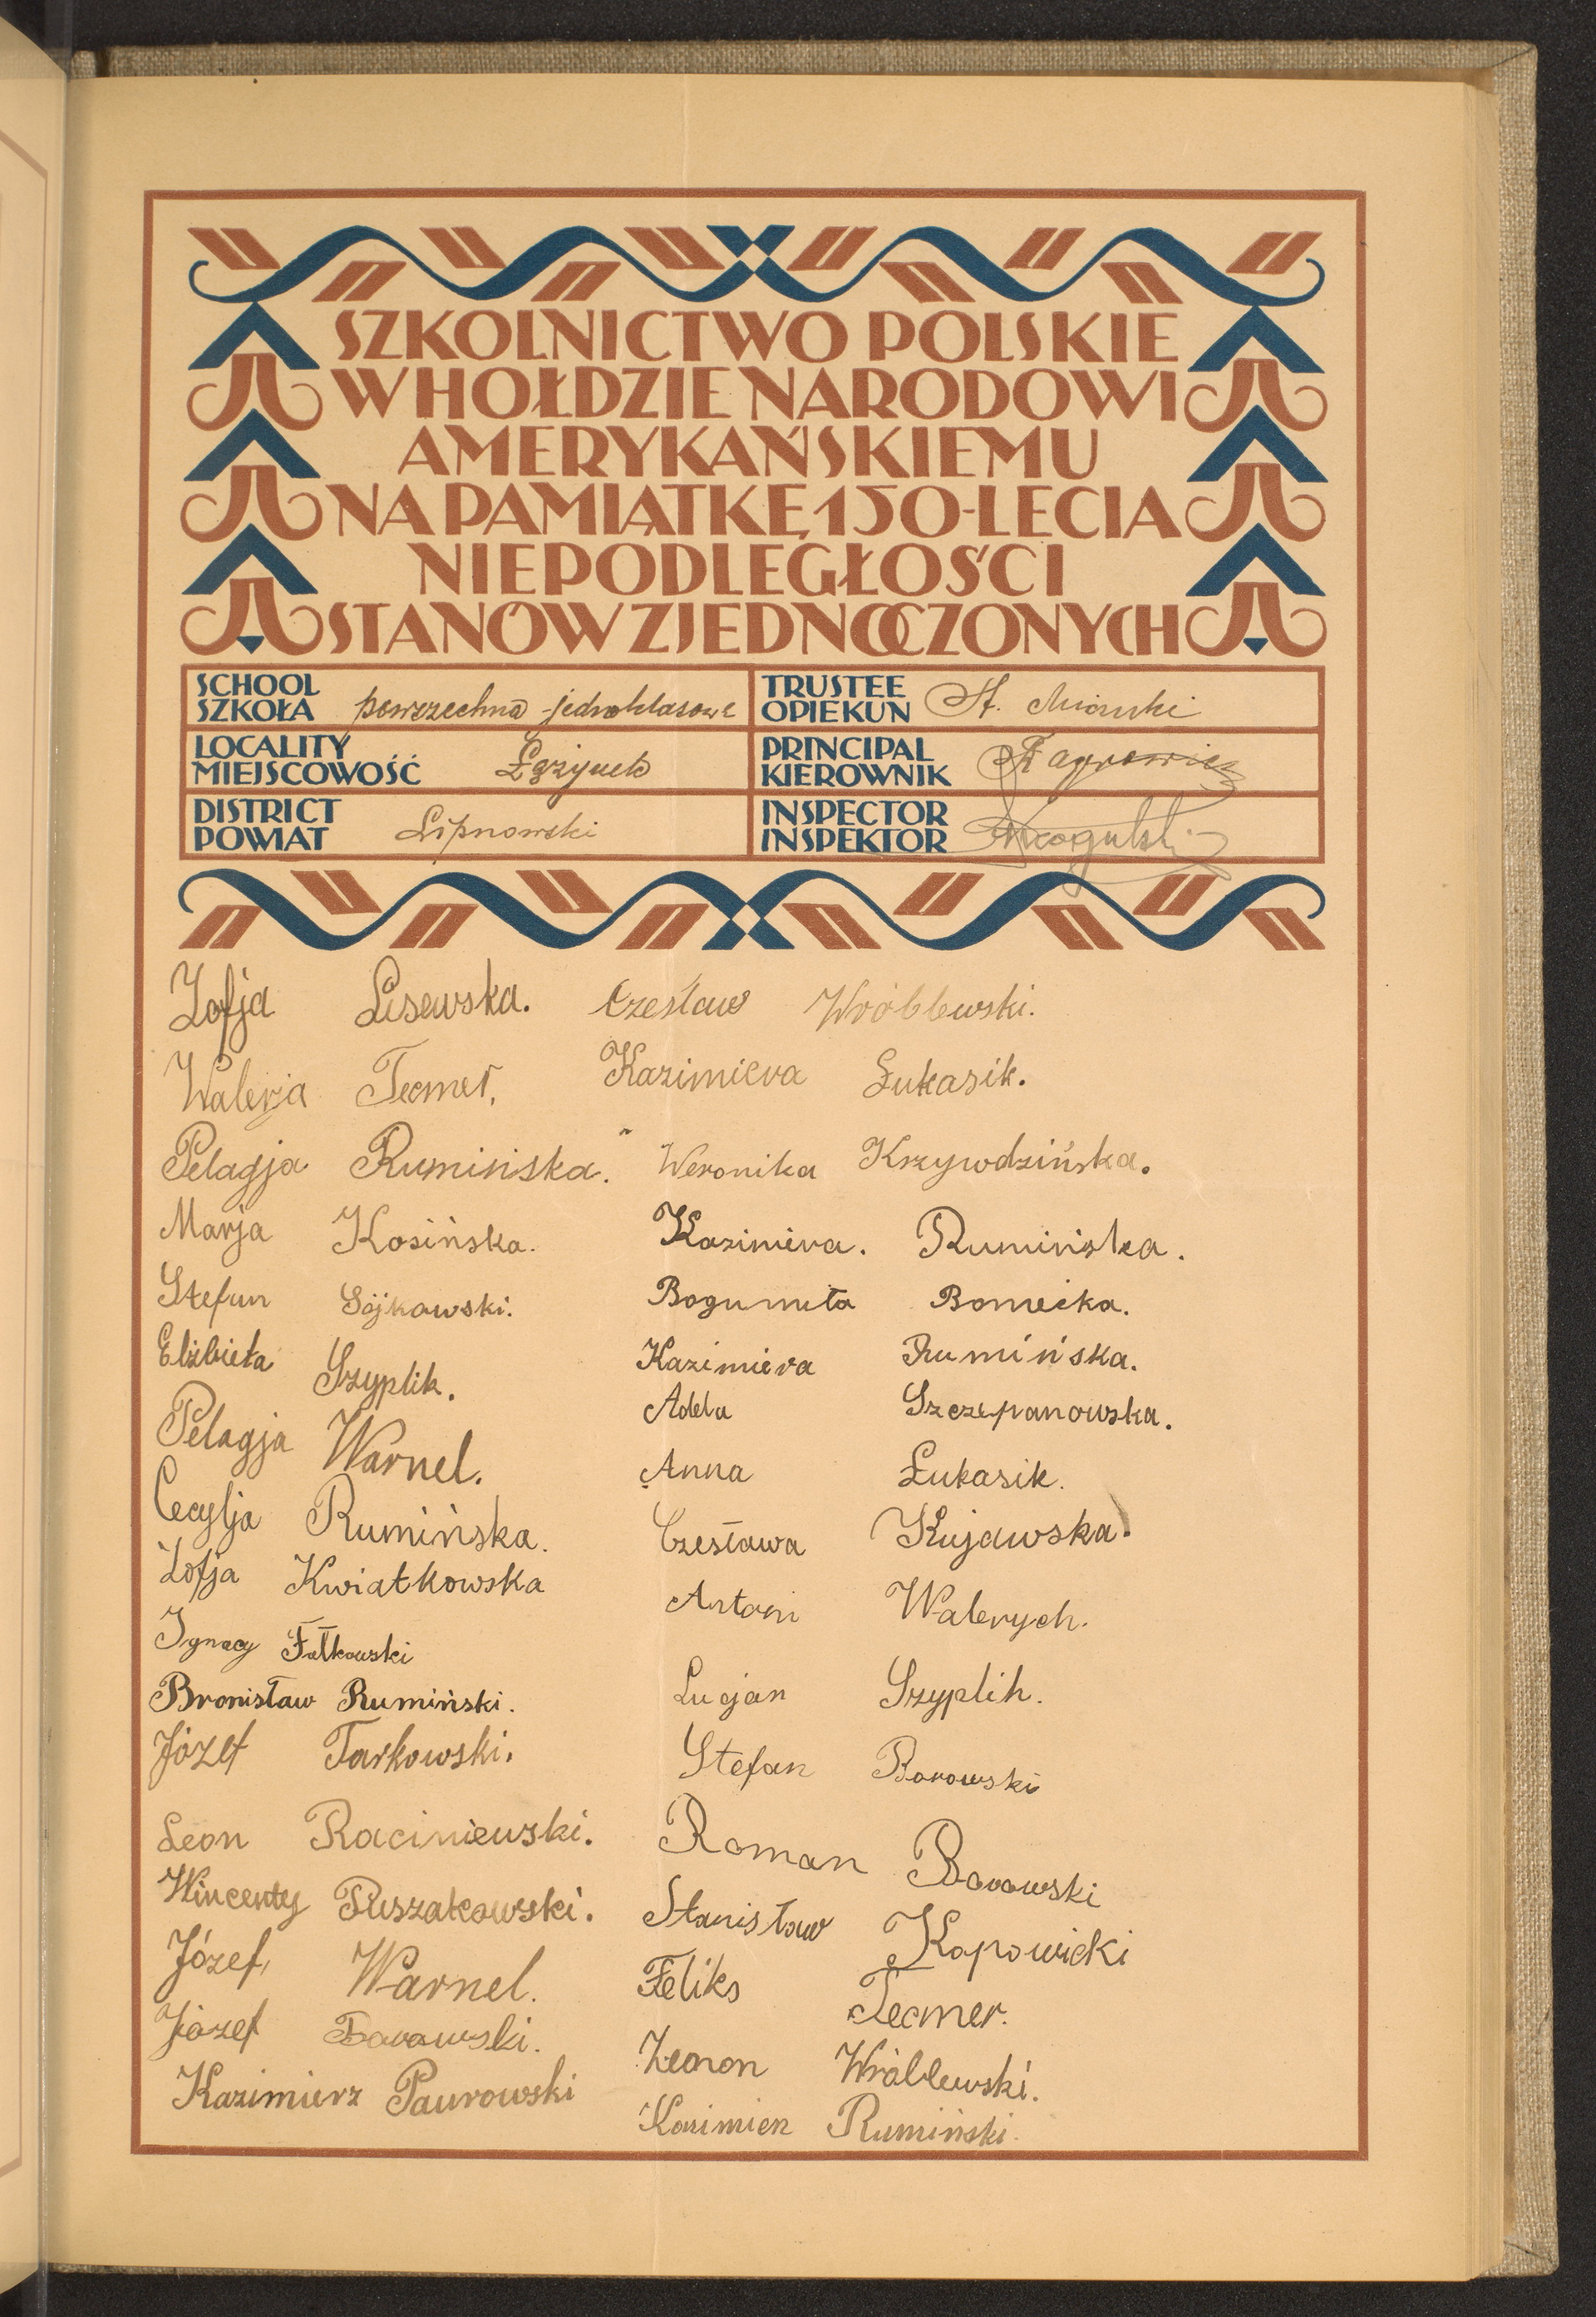 SZKOLNICTWO POLSKIE
W HOŁDZIE NARODOWI
AMERYKAŃSKIEMU
NA PAMIĄTKĘ 150-LECIA
NIEPODLEGŁOŚCI
STANÓW ZJEDNOCZONYCH
SCHOOL
SZKOŁA powszechna - jednoklasowa
TRUSTEE
OPIEKUN St.
LOCALITY
MIEJSCOWOŚĆ
PRINCIPAL
KIEROWNIK
DISTRICT
POWIAT Lipnowski
INSPECTOR
INSPEKTOR
Zofja Lisewska.
Walerja Tecmer.
Pelagja Rumińska.
Marja Kosińska.
Stefan Sójkowski.
Elżbieta Szyplik.
Pelagja Warnel.
Cecylja Rumińska.
Zofja Kwiatkowska
Ignacy Fałkowski
Bronisław Rumiński.
Józef Tarkowski.
Leon Raciniewski.
Wincenty Puszakowski.
Józef Warnel.
Józef Borowski.
Kazimierz Paurowski
Czesław Wróblewski.
Kazimiera Łukasik.
Weronika Krzywdzińska.
Kazimiera. Rumińska.
Bogumiła Bomecka.
Kazimiera Rumińska.
Adela Szczepanowska.
Anna Łukasik.
Czesława Kujawska.
Antoni Walerych.
Lucjan Szyplik.
Stefan Borowski
Roman Borowski
Stanisław Kopowicki
Feliks Tecmer.
Zenon Wróblewski.
Kazimierz Rumiński.